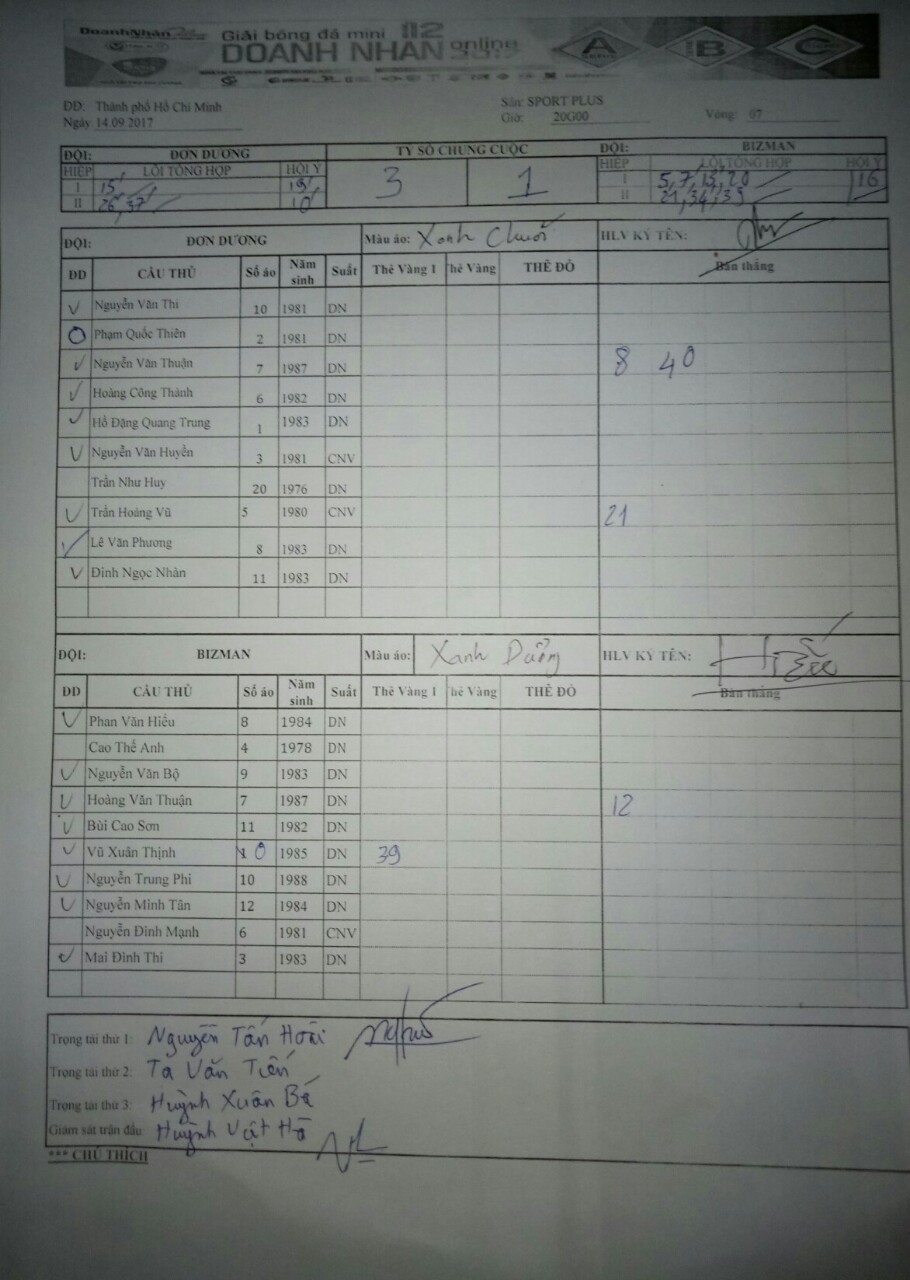 DoanhNhân
Giải bóng đá mini
DOANH NHÂN online
A B C
ĐĐ: Thành phố Hồ Chí Minh
Sân: SPORT PLUS
Ngày. 14.09.2017
Giờ: 20G00
Vòng: 07
ĐỘI: ĐƠN DƯƠNG TỶ SỐ CHUNG CUỘC ĐỘI: BIZMAN
HIỆP LỖI TỔNG HỢP HỘI Ý 3 1 HIỆP LỖI TỔNG HỢP HỘI Ý
I 15' I 5,7,13,20 16
II 26,37 10' II 21,34,39
ĐỘI: ĐƠN DƯƠNG Màu áo: Xanh Chuối HLV KÝ TÊN:
ĐD CẦU THỦ Số áo Năm sinh Suất Thẻ Vàng 1 Thẻ Vàng THẺ ĐỎ Bàn thắng
Nguyễn Văn Thi 10 1981 DN
Phạm Quốc Thiên 2 1981 DN
Nguyễn Văn Thuận 7 1987 DN 8 40
Hoàng Công Thành 6 1982 DN
Hồ Đặng Quang Trung 1 1983 DN
Nguyễn Văn Huyền 3 1981 CNV
Trần Như Huy 20 1976 DN
Trần Hoàng Vũ 5 1980 CNV 21
Lê Văn Phương 8 1983 DN
Đinh Ngọc Nhàn 11 1983 DN
ĐỘI: BIZMAN Màu áo: Xanh Dương HLV KÝ TÊN: Hiếu
ĐD CẦU THỦ Số áo Năm sinh Suất Thẻ Vàng 1 Thẻ Vàng THẺ ĐỎ Bàn thắng
Phan Văn Hiếu 8 1984 DN
Cao Thế Anh 4 1978 DN
Nguyễn Văn Bộ 9 1983 DN
Hoàng Văn Thuận 7 1987 DN 12
Bùi Cao Sơn 11 1982 DN
Vũ Xuân Thịnh 0 1985 DN 39
Nguyễn Trung Phi 10 1988 DN
Nguyễn Minh Tân 12 1984 DN
Nguyễn Đình Mạnh 6 1981 CNV
Mai Đình Thi 3 1983 DN
Trọng tài thứ 1: Nguyễn Tấn Hoài
Trọng tài thứ 2: Tạ Văn Tiến
Trọng tài thứ 3: Huỳnh Xuân Bá
Giám sát trận đấu: Huỳnh Vật Hà
*** CHÚ THÍCH